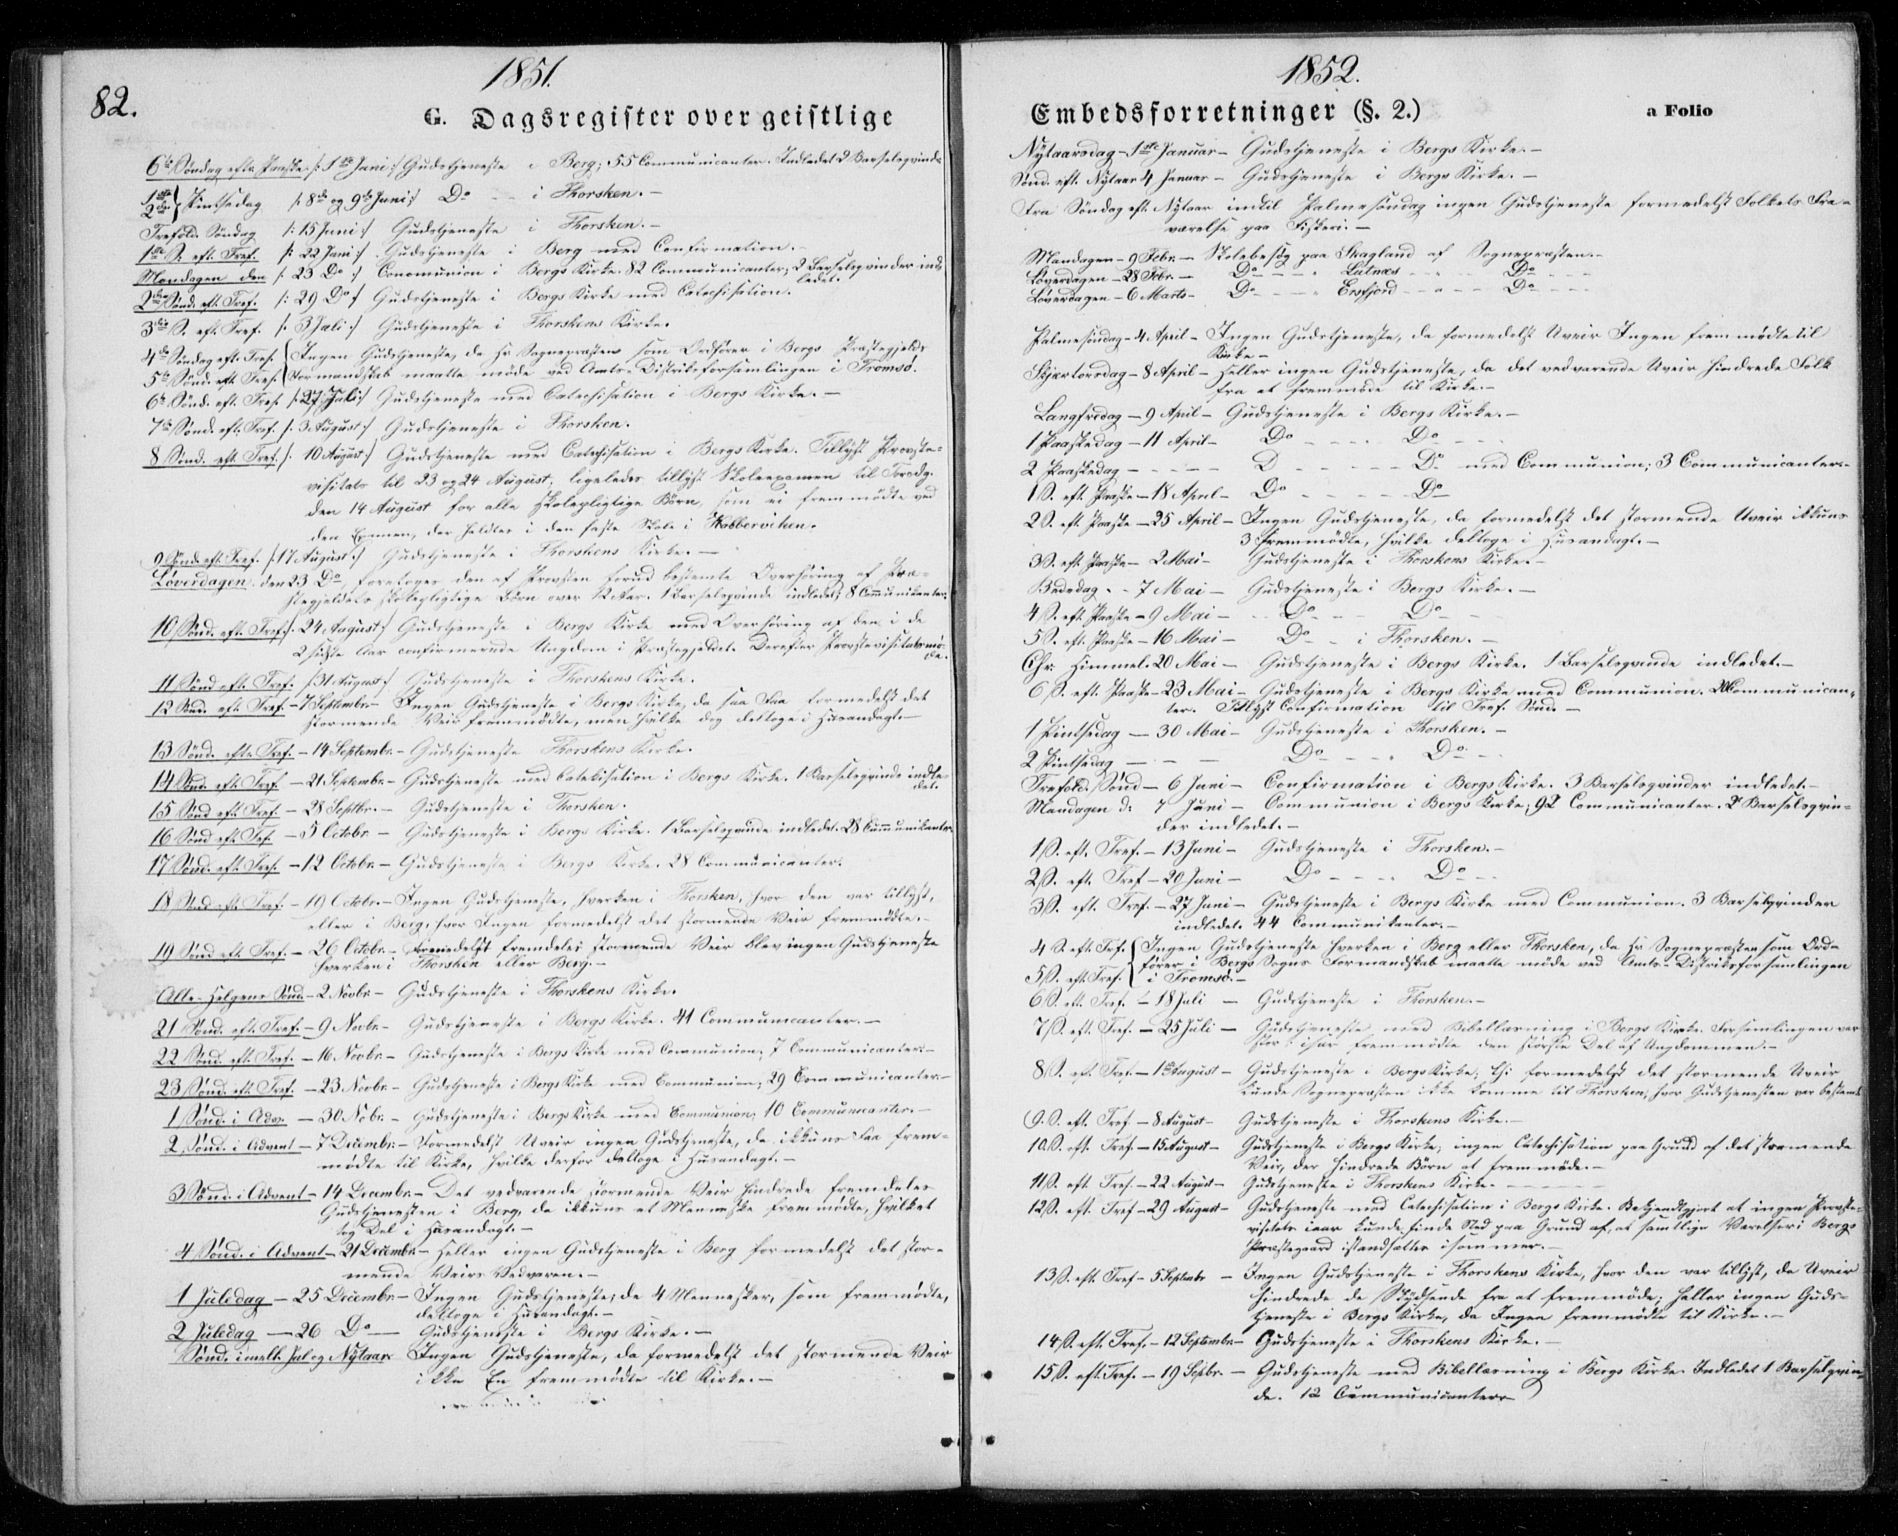 1851.
82.
G. Dagsregister over geistlige
6te Søndag efter Paaske /: 1ste Juni :/ Gudstjeneste i Berg; 55 Communicanter. Indledet 2 Barselqvinder
1ste
2den } Pintsedag /: 8de og 9de Juni :/ Do - - i Thorsken. -
Trefold. Søndag /: 15 Juni :/ Gudstjeneste i Thorsken. -
1ste S. eft. Tref. /: 22 Juni :/ Gudstjeneste i Berg med Confirmation. -
Mandagen den /: 23 Do :/ Communion i Bergs Kirke. 82 Communicanter; 2 Barselqvinder ind-
ledet.
2den Sønd. eft. Tref. /: 29 Do :/ Gudstjeneste i Bergs Kirke med Catechisation.
3die S. eft. Tref. /: 3 Juli :/ Gudstjeneste i Thorskens Kirke.
4de Søndag eft. Tref. { Ingen Gudstjeneste, da Hr Sognepræsten som Ordfører i Bergs Præstegjelds
5te Sønd. eft. Tref. { Formandskab maatte møde ved Amts-Distriktsforsamlingen i Tromsø.
6te Sønd. eft. Tref. /: 27 Juli :/ Gudstjeneste med Catechisation i Bergs Kirke. -
7de Sønd. eft. Tref. /: 3 August :/ Gudstjeneste i Thorsken.
8 Sønd. eft. Tref. /: 10 August :/ Gudstjeneste med Catechisation i Bergs Kirke. Tillyst Provste-
visitats til 23 og 24 August; ligeledes tillyst Skoleexamen til Torsdg.
den 14 August for alle skolepligtige Børn, som ei fremmødte ved
den Examen, der holdtes i den faste Skole i Kobberviken.
9 Sønd. eft. Tref. /: 17 August :/ Gudstjeneste i Thorskens Kirke. -
Løverdagen den 23 Do foretoges den af Provsten forud bestemte Overhøring af Præ-
stegjeldets skolepligtige Børn over 12 Aar. 1 Barselqvinde indledet; 8 Communikanter.
10 Sønd. eft. Tref. /: 24 August :/ Gudstjeneste i Bergs Kirke med Overhøring af den i de
2 sidste Aar confirmerede Ungdom i Præstegjeldet. Derefter Provstevisitatsmø-
de.
11 Sønd. eft. Tref. /: 31 August :/ Gudstjeneste i Thorskens Kirke.
12 Sønd. eft. Tref. - 7 Septembr. - Ingen Gudstjeneste i Bergs Kirke, da saa Faa formedelst det
stormende Veir fremmødte, men hvilke dog deltoge i Husandagt. -
13 Sønd. eft. Tref. - 14 Septembr. - Gudstjeneste Thorskens Kirke.
14 Sønd. eft. Tref. - 21 Septembr. - Gudstjeneste med Catekisation i Bergs Kirke. 1 Barselqvinde indle-
det.
15 Sønd eft. Tref. - 28 Septbr. - Gudstjeneste i Thorsken.
16 Sønd eft. Tref. - 5 Octobr. - Gudstjeneste i Bergs Kirke. 1 Barselqvinde indledet. 28 Communikanter.
17 Sønd. eft. Tref. - 12 Octbr. - Gudstjeneste i Bergs Kirke. 28 Communicanter.
18 Sønd eft. Tref. - 19 Octobr. - Ingen Gudstjeneste, hverken i Thorsken, hvor den var tillyst,
eller i Berg, hvor Ingen formedelst det stormende Veir fremmødte. -
19 Sønd eft. Tref. - 26 Octobr. - Formedelst fremdeles stormende Veir blev ingen Gudstjeneste
hverken i Thorsken eller Berg. -
Alle-Helgens Sønd. - 2 Novbr. - Gudstjeneste i Thorskens Kirke.
21 Sønd. eft. Tref. - 9 Novbr. - Gudstjeneste i Bergs Kirke. 41 Communicanter. -
22 Sønd. eft. Tref. - 16 Novbr. - Gudstjeneste i Bergs Kirke med Communion; 7 Communicanter. -
23 Sønd. eft. Tref. - 23 Novbr. - Gudstjeneste i Bergs Kirke med Communion; 29 Communicanter. -
1 Sønd. i Adv. - 30 Nobr. - Gudstjeneste i Bergs Kirke med Communion; 10 Communicanter. -
2 Sønd. i Advent - 7 Decembr. - Formedelst Uveir ingen Gudstjeneste, da ikkuns Faa frem-
mødte til Kirke, hvilke derfor deltoge i Husandagt. -
3 Sønd. i Advent - 14 Decembr. - Det vedvarende stormende Veir hindrede fremdeles
Gudstjenesten i Berg, da ikkuns et Menneske fremmødte, hvilket
tog Del i Husandagt. -
4 Sønd. i Advent - 21 Decembr. - Heller ingen Gudstjeneste i Berg formedelst det stor-
mende Veirs Vedvaren. -
1 Juledag - 25 Decembr. - Ingen Gudstjeneste; de 4 Mennesker, som fremmødte,
deltoge i Husandagt. -
2 Juledag - 26 Do - Gudstjeneste i Bergs Kirke. -
Sønd. imell. Jul og Nytaar Ingen Gudstjeneste, da formedelst det stormende Veir
ikke En fremmødte til Kirke. -
1852.
Embedsforretninger (§. 2.) a Folio
Nytaarsdag - 1ste Januar - Gudstjeneste i Bergs Kirke. -
Sønd. eft. Nytaar 4 Januar - Gudstjeneste i Bergs Kirke. -
Fra Søndag eft. Nytaar indtil Palmesøndag ingen Gudstjeneste formedelst Folkets Fra-
værelse paa Fiskeri. -
Mandagen - 9 Febr. - Skolebesøg paa Skagland af Sognepræsten. -
Løverdagen - 28 Febr. - Do - - - Lutnæs - - - Do - - -
Løverdagen - 6 Marts - Do - - - Ersfjord - - - Do - - -
Palmesøndag - 4 April - Ingen Gudstjeneste, da formedelst Uveir Ingen fremmødte til
Kirke -
Skjærtorsdag - 8 April - Heller ingen Gudstjeneste, da det vedvarende Uveir hindrede Folk
fra at fremmøde til Kirke. -
Langfredag - 9 April - Gudstjeneste i Bergs Kirke. -
1 Paaskedag - 11 April - Do - - - - Do - - -
2 Paaskedag - - - - - D - - - - - Do med Communion; 3 Communicanter. -
1 S. eft. Paaske - 18 April - Do - - - - - Do
2 S. eft. Paaske - 25 April - Ingen Gudstjeneste, da formedelst det stormende Uveir ikkuns
3 fremmødte, hvilke deltoge i Husandagt. -
3 S. eft. Paaske - 2 Mai - Gudstjeneste i Thorskens Kirke. -
Bededag - - 7 Mai - Gudstjeneste i Bergs Kirke. -
4 S. eft. Paaske - 9 Mai - - Do - - Do - -
5 S. eft. Paaske - 16 Mai - Do - i Thorsken. -
Chr. Himmel. 20 Mai - Gudstjeneste i Bergs Kirke. 1 Barselqvinde indledet. -
6 S. eft. Paaske - 23 Mai - Gudstjeneste i Bergs Kirke med Communion. Communican-
ter. Tillyst Confirmation til Tref. Sønd. -
1 Pintsedag - 30 Mai - Gudstjeneste i Thorsken. -
2 Pintsedag - - - Do - - - Do - -
Trefold. Sønd - 6 Juni - Confirmation i Bergs Kirke. 3 Barselqvinder indledet. -
Mandagen d: 7 Juni - Communion i Bergs Kirke; 92 Communicanter. 2 Barselqvin-
der indledet. -
1 S. eft. Tref. - 13 Juni - Gudstjeneste i Thorsken. -
2 S. eft. Tref - 20 Juni - Do - - - - Do - -
3 S. eft. Tref. - 27 Juni - Gudstjeneste i Bergs Kirke med Communion. 3 Barselqvinder
indledet. 44 Communikanter. -
4 S. eft. Tref. { Ingen Gudstjeneste hverken i Berg eller Thorsken, da Hr Sognepræsten som Ord-
fører i Bergs Sogns Formandskab maatte møde ved Amts-Distriktsforsamlingen
5 S. eft. Tref. { i Tromsø. -
6 S. eft. Tref. - 18 Juli - Gudstjeneste i Thorsken. -
7 S. eft. Tref - 25 Juli - Gudstjeneste med Bibellæsning i Bergs Kirke. Forsamlingen var
stor; især fremmødte den største Del af Ungdommen. -
8 S. eft. Tref. - 1ste August - Gudstjeneste i Bergs Kirke, thi formedelst det stormende Uveir
kunde Sognepræsten ikke komme til Thorsken, hvor Gudstjenesten var bestemt.
9. S. eft. Tref - 8 August - Gudstjeneste i Thorskens Kirke. -
10. S. eft. Tref - 15 August - Gudstjeneste i Bergs Kirke; ingen Catechisation paa Grund af det stormende
Veir, der hindrede Børn at fremmøde. -
11 S. eft. Tref. - 22 August - Gudstjeneste i Thorskens Kirke. - - - -
12 S. eft. Tref - 29 August - Gudstjeneste med Catechisation i Bergs Kirke. Bekjendtgjort at ingen Provste-
visitats iaar kunde finde Sted paa Grund af, at samtlige Værelser i Bergs
Præstegaard istandsattes isommer. -
13 S. eft. Tref - 5 Septembr - Ingen Gudstjeneste i Thorskens Kirke, hvor den var tillyst, da Uveir
hindrede de Skydsende fra at fremmøde; heller ingen Guds-
tjeneste i Bergs Kirke, da Ingen fremmødte til Kirke. -
14 S. eft. Tref. - 12 Septembr - Gudstjeneste i Thorskens Kirke. -
15 S. eft. Tref. - 19 Sepbr. - Gudstjeneste med Bibellæsning i Bergs Kirke. Indledet 1 Barselqvin-
de. 12 Communicanter